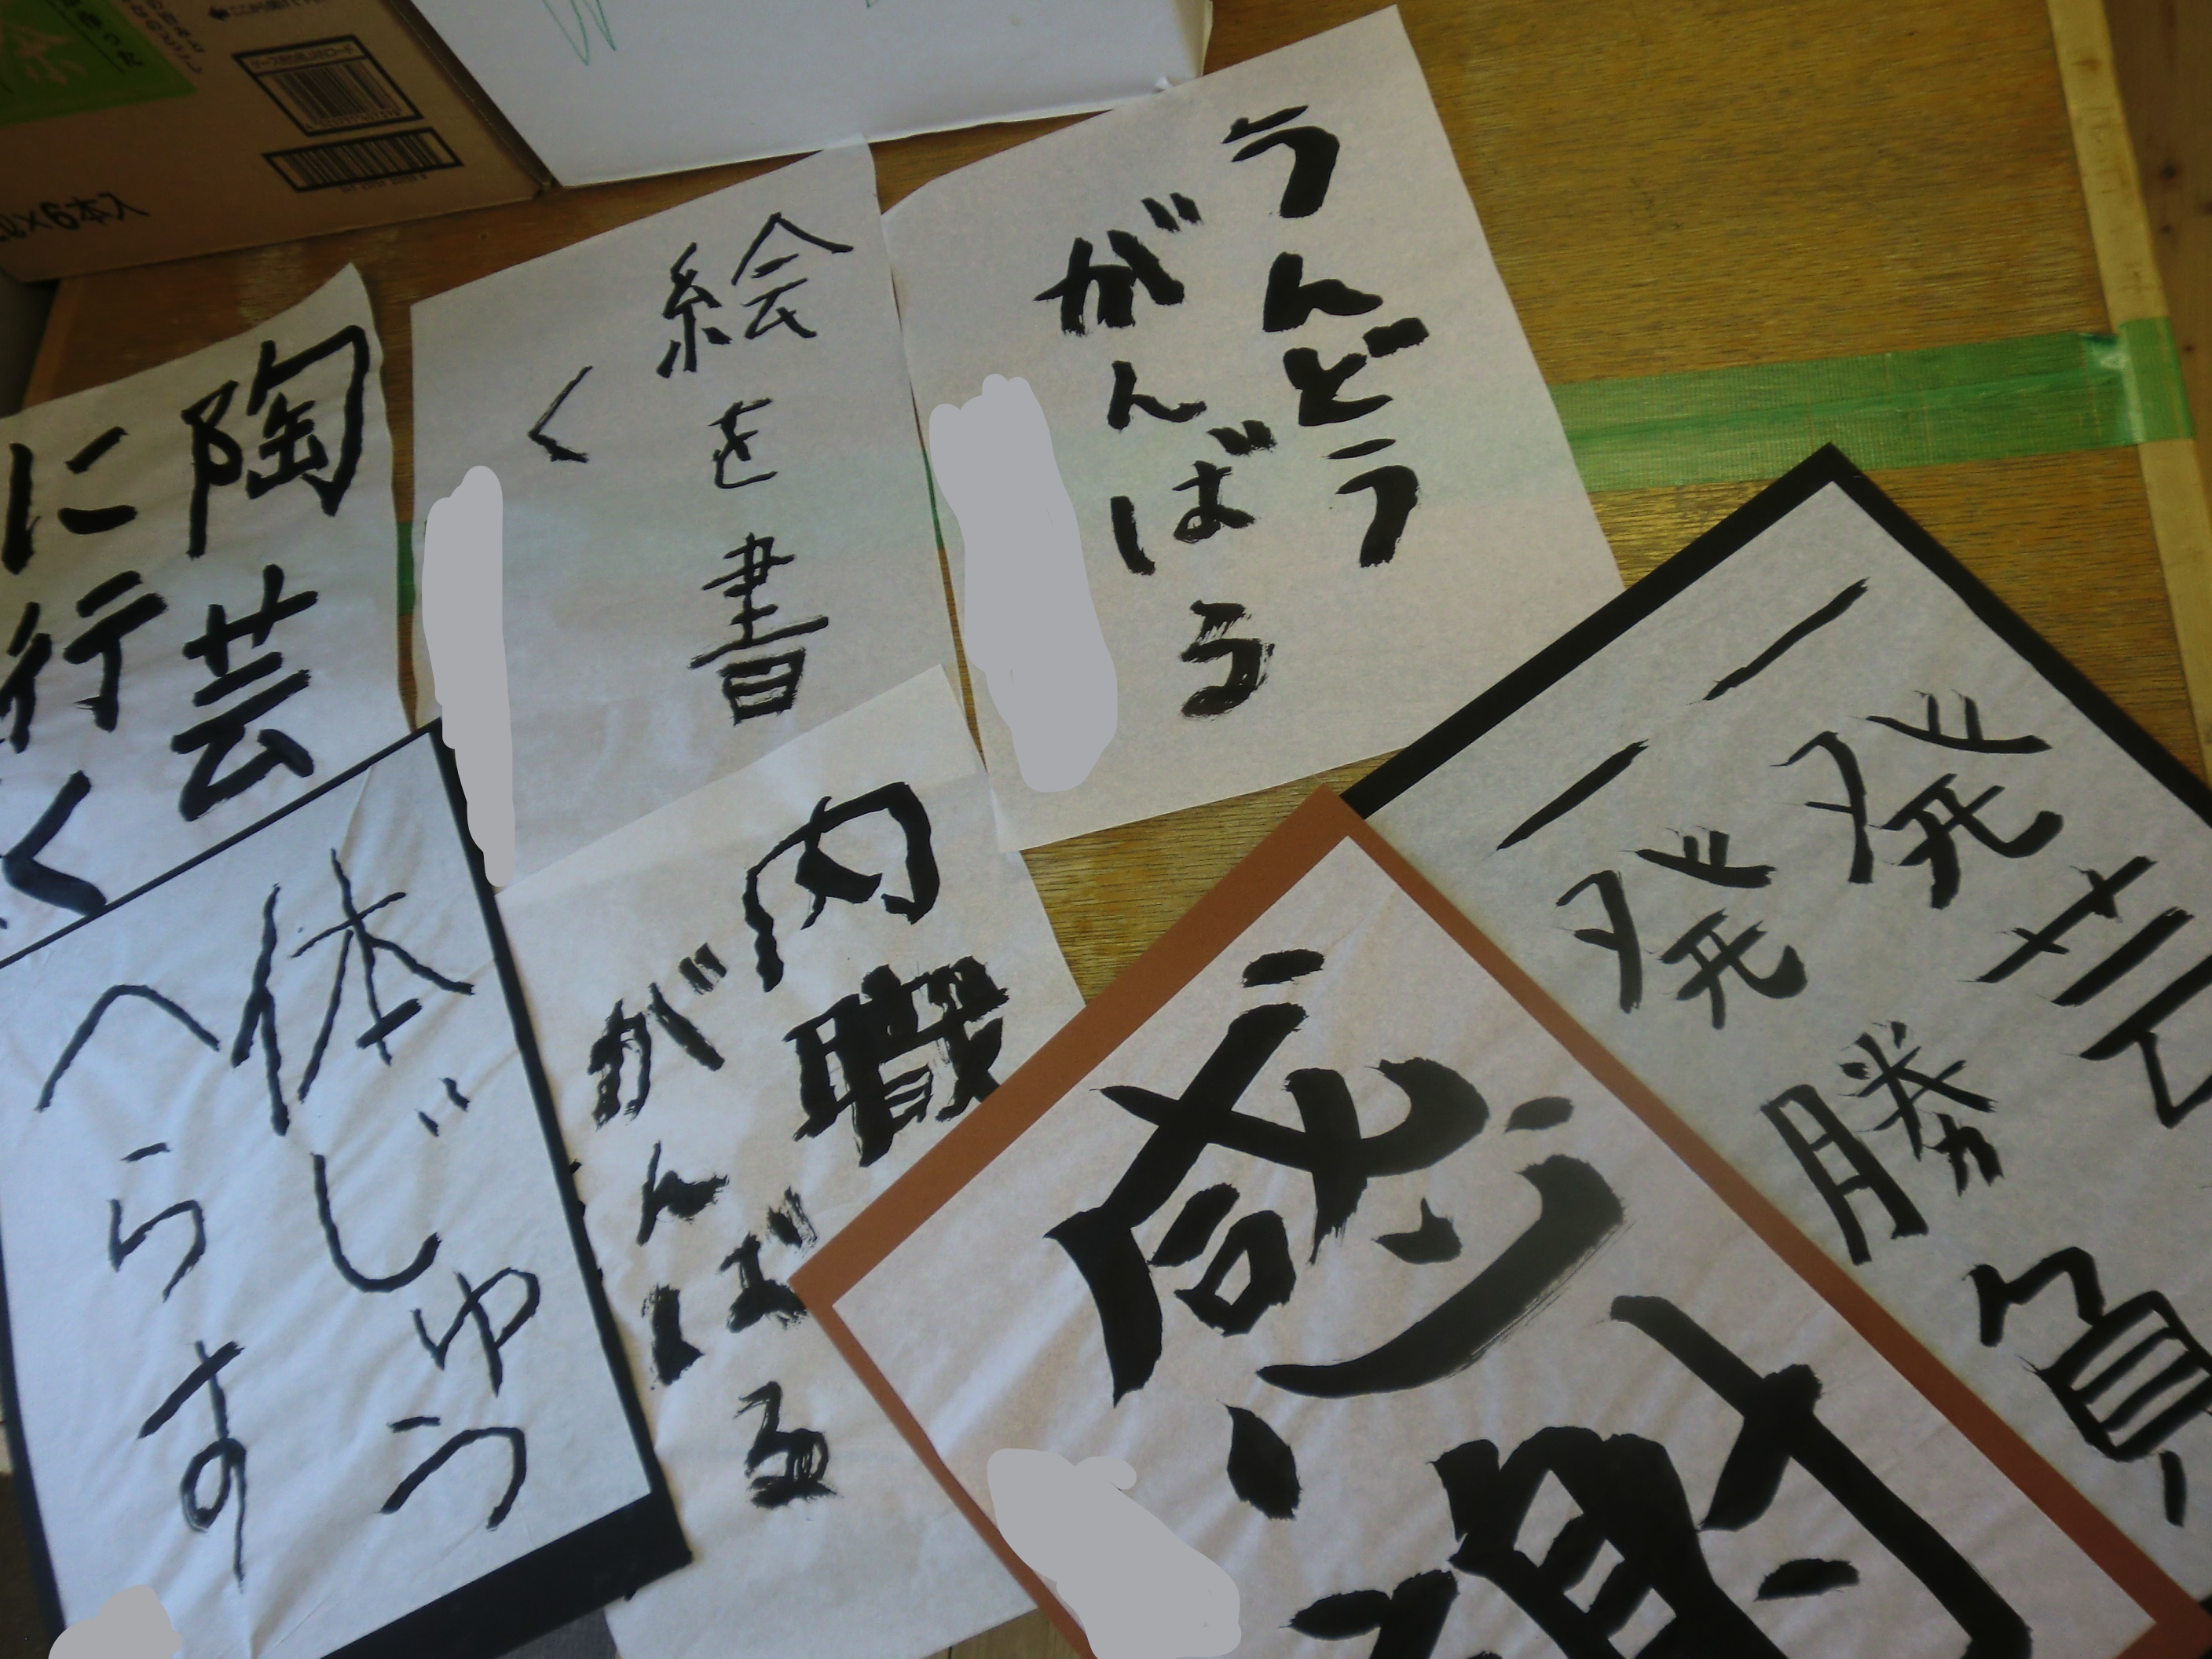 うんどう
がんばる
絵を書
く
陶芸
に行く
内職
がんばる
体じゅう
へらす
一発芸
一発勝負
感謝
6本入